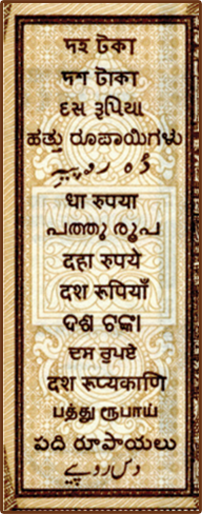 দহ টকা
দশ টাকা
દસ રૂપિયા
ಹತ್ತು ರೂಪಾಯಿಗಳು
धा रुपया
പത്തു രൂപ
दहा रुपये
दश रूपियाँ
ଦଶ ଟଙ୍କା
ਦਸ ਰੁਪਏ
दश रूप्यकाणि
பத்து ரூபாய்
పది రూపాయలు
دس روپے